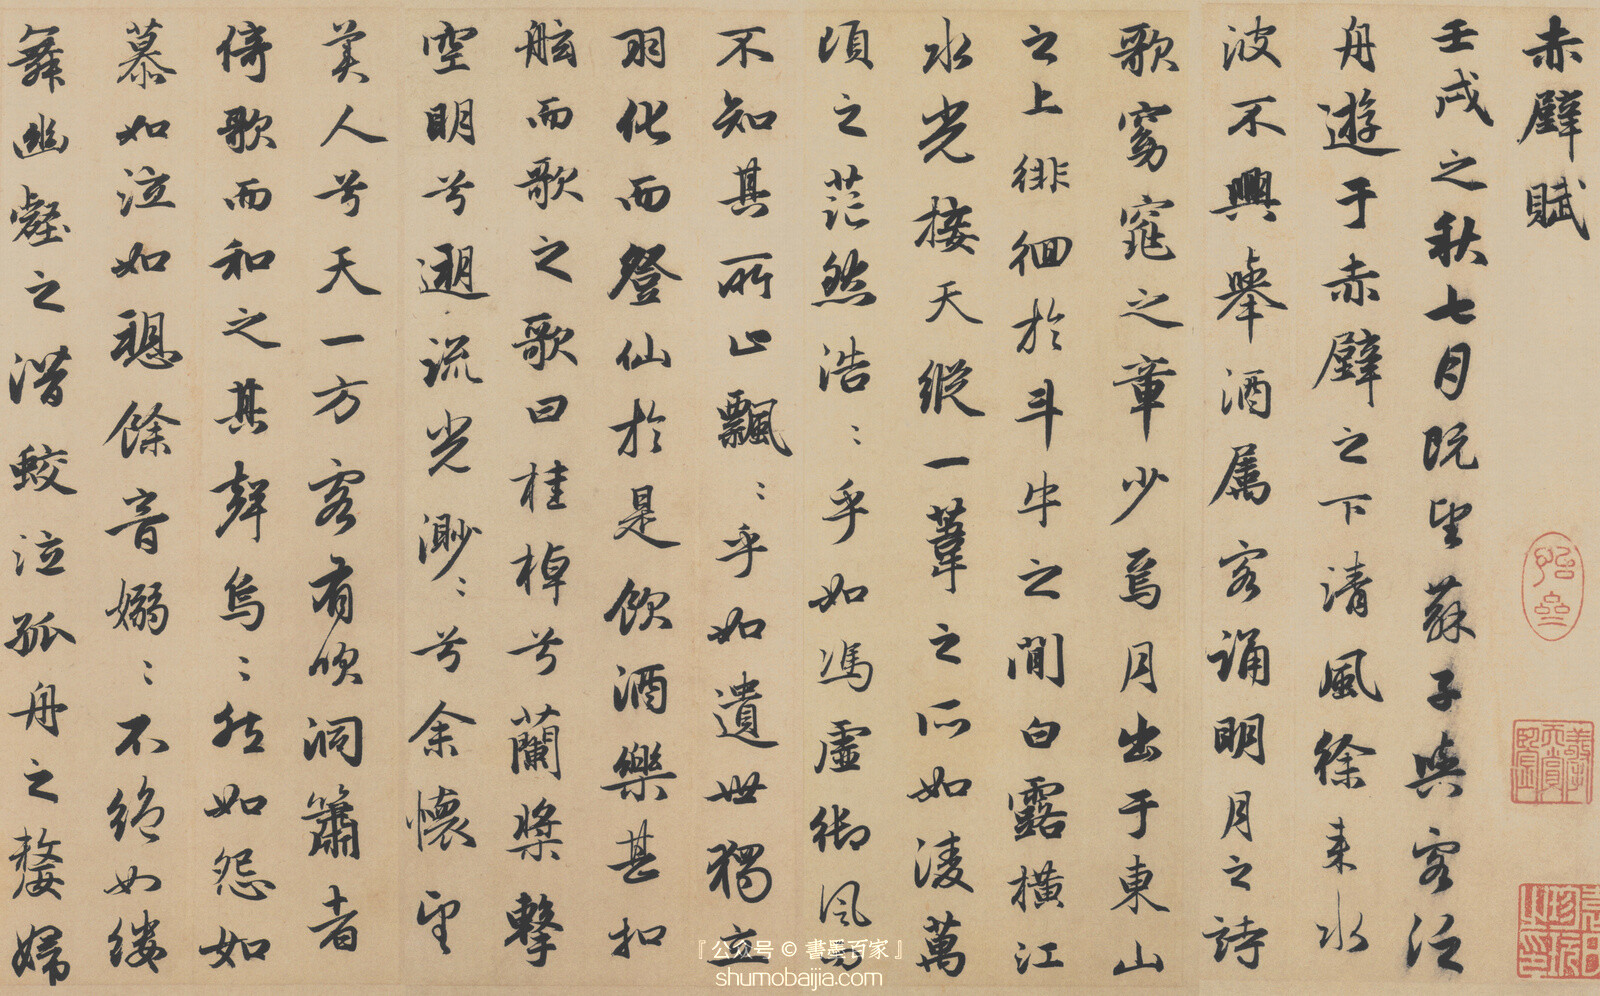 赤壁賦
壬戌之秋七月既望蘇子與客泛
舟遊于赤壁之下清風徐来水
波不興舉酒属客誦明月之詩
歌窈窕之章少焉月出于東山
之上徘徊於斗牛之間白露橫江
水光接天縱一葦之所如凌萬
頃之茫然浩〻乎如馮虛御風而
不知其所止飄〻乎如遺世獨立
羽化而登仙於是飲酒樂甚扣
舷而歌之歌曰桂棹兮蘭槳擊
空明兮遡流光渺〻兮余懷望
美人兮天一方客有吹洞簫者
倚歌而和之其聲烏〻然如怨如
慕如泣如愬餘音嫋〻不絕如縷
舞幽壑之潛蛟泣孤舟之嫠婦
『公众号 © 書墨百家』
shumobaijia.com